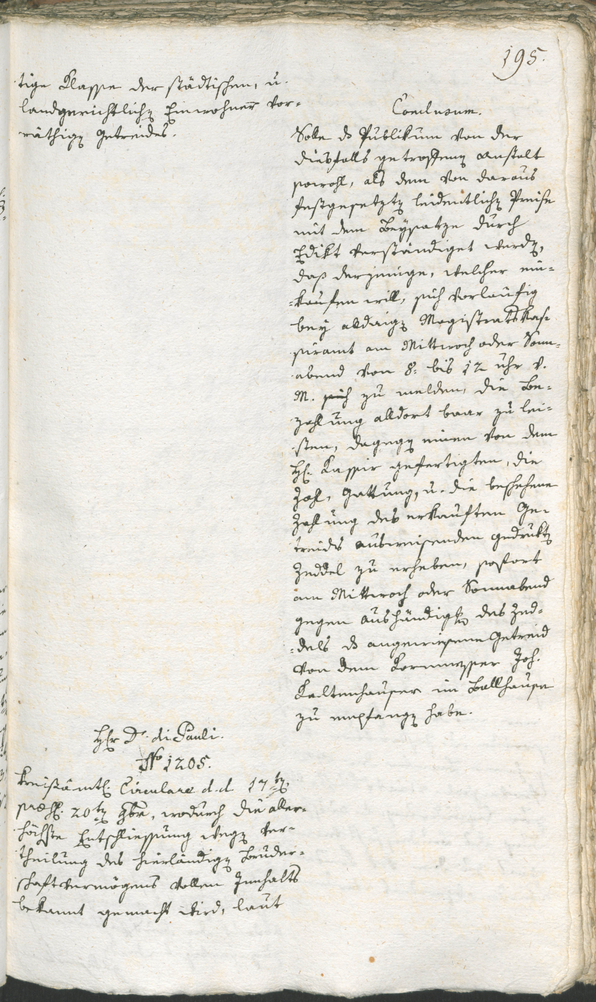 195.
tige Klasse der städtischen, u.
landgerichtlichen Einwohner vor-
räthigen Getreides.
Conclusum.
Solle das Publikum von der
diesfalls getroffenen Anstalt
sowohl, als dem von daraus
festgesetzten leidentlichen Preise
mit dem Beysatze durch
Edikt verständiget werden,
daß derjenige, welcher ein-
kaufen will, sich vorläufig
bey aldasigen Magistrats Kas-
siramt am Mittwoch oder Sonn-
abend von 8. bis 12 Uhr V.
M. sich zu melden, die Be-
zahlung alldort baar zu lei-
sten, dagegen einen von dem
H. Kassir gefertigten, die
Zahl, Gattung, u. die beschehene
Zahlung des erkauften Ge-
treids ausweisenden gedrukten
Zeddel zu erheben, sofort
am Mittwoch oder Sonnabend
gegen Aushändigung des Zed-
dels das angewiesene Getreid
von dem Kornmesser Joh.
Kaltenhauser im Ballhause
zu empfangen habe.
Hr. Dr. di Pauli.
No 1205.
Kreisämtl. Circulare d. d. 17ten,
präs. 20ten 9br, wodurch die aller-
höchste Entschliessung wegen Ver-
theilung des hierländigen Bruder-
schaftsvermögens vollen Innhalts
bekannt gemacht wird, laut